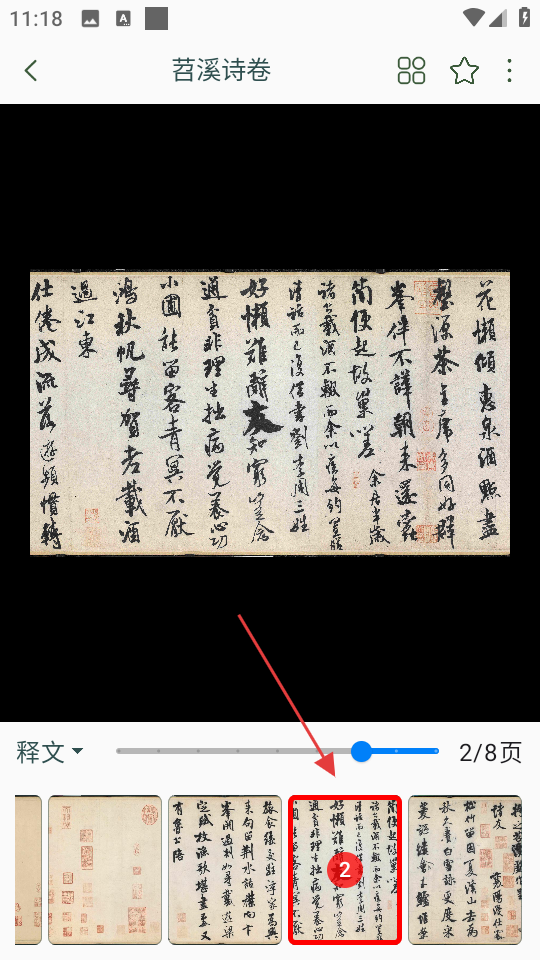 11:18
苕溪诗卷
花懶傾惠泉酒點盡
壑源茶主席多同好群
峯伴不譁朝來還蠹
簡便起故巢嗟 余居半歲
諸公載酒不輟而余以疾每約置膳
清話而已復借書劉李周三姓
好懶難辭友知窮豈念
通貧非理生拙病覺養心功
小圃能留客青冥不厭
鴻秋帆尋賀老載酒
過江東
仕倦成流落遊頻慣轉
释文
2/8页
2